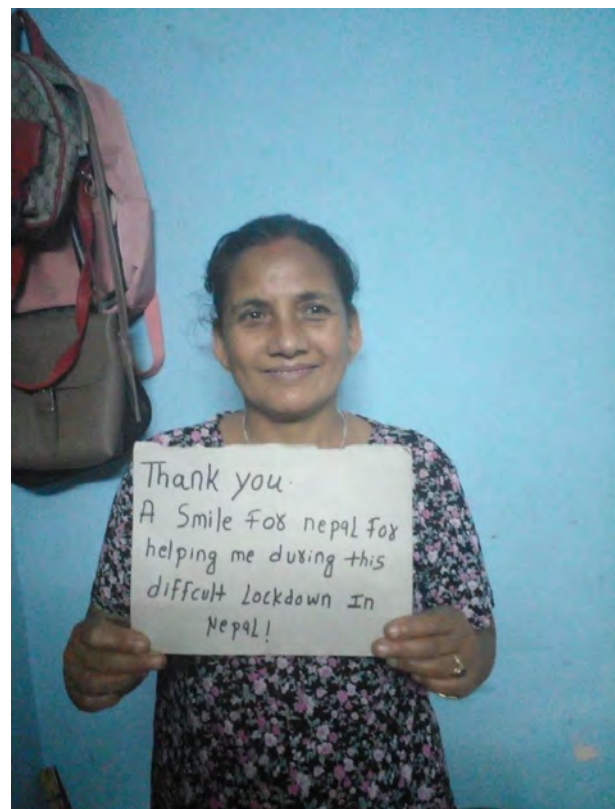 Thank you.
A Smile For nepal For
helping me during this
diffcult Lockdown In
Nepal!